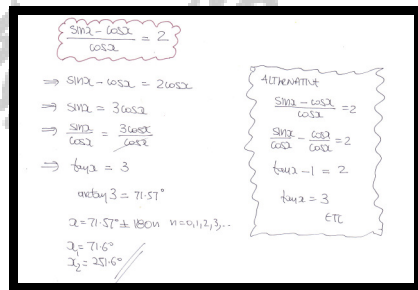 (sinx - cosx)/cosx = 2
⇒ sinx - cosx = 2cosx
⇒ sinx = 3cosx
⇒ sinx/cosx = 3cosx/cosx
⇒ tanx = 3
arctan 3 = 71.57°
x = 71.57° ± 180n n=0,1,2,3,...
x₁ = 71.6°
x₂ = 251.6°
ALTERNATIVE
(sinx - cosx)/cosx = 2
sinx/cosx - cosx/cosx = 2
tanx - 1 = 2
tanx = 3
ETC